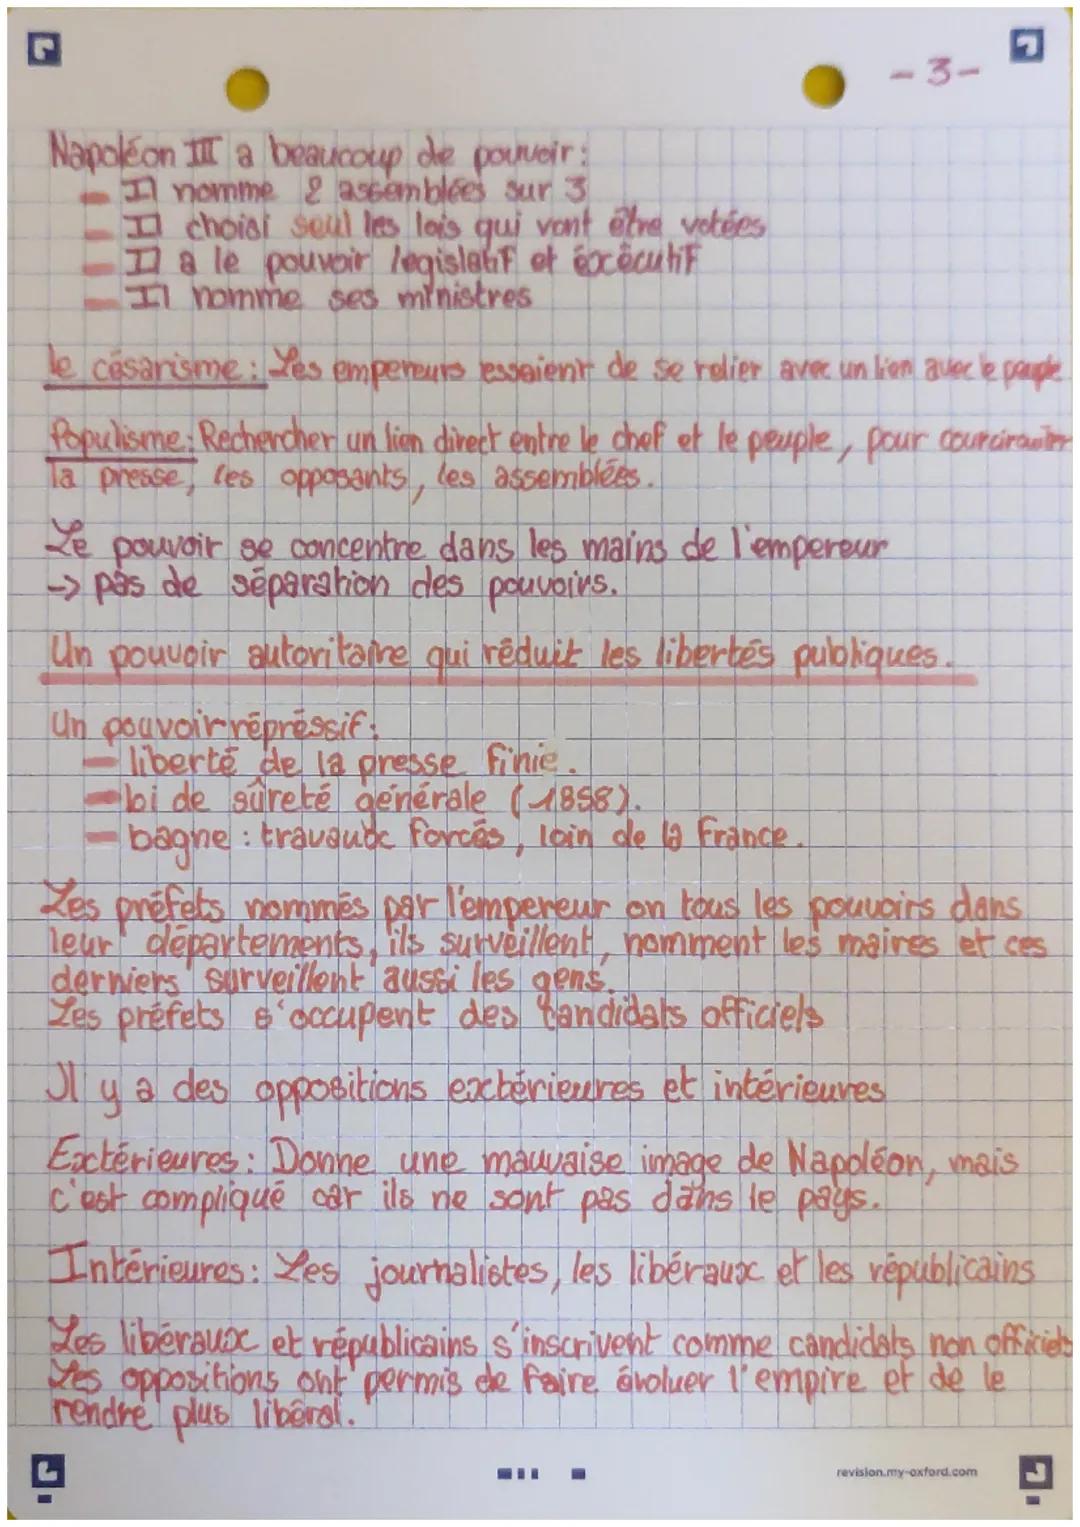 -3-
Napoléon III a beaucoup de pouvoir:
- Il nomme 2 assemblées sur 3
- Il choisi seul les lois qui vont être votées
- Il a le pouvoir législatif et éxécutif
- Il nomme ses ministres
le césarisme: Les empereurs essaient de se relier avec un lien avec le peuple
Populisme: Rechercher un lien direct entre le chef et le peuple, pour
la presse, les opposants, les assemblées.
Le pouvoir se concentre dans les mains de l'empereur
-> pas de séparation des pouvoirs.
Un pouvoir autoritaire qui réduit les libertés publiques.
Un pouvoir répréssif:
- liberté de la presse finie.
- loi de sûreté générale (1858).
- bagne: travaux forcés, loin de la France.
Les préfets nommés par l'empereur on tous les pouvoirs dans
leur départements, ils surveillent, nomment les maires et ces
derniers surveillent aussi les gens.
Les préfets s'occupent des candidats officiels
Il y a des oppositions extérieures et intérieures
Extérieures: Donne une mauvaise image de Napoléon, mais
c'est compliqué car ils ne sont pas dans le pays.
Intérieures: Les journalistes, les libéraux et les républicains
Les libéraux et républicains s'inscrivent comme candidats non officiels
Les oppositions ont permis de faire évoluer l'empire et de le
rendre plus libéral.
revision.my-oxford.com